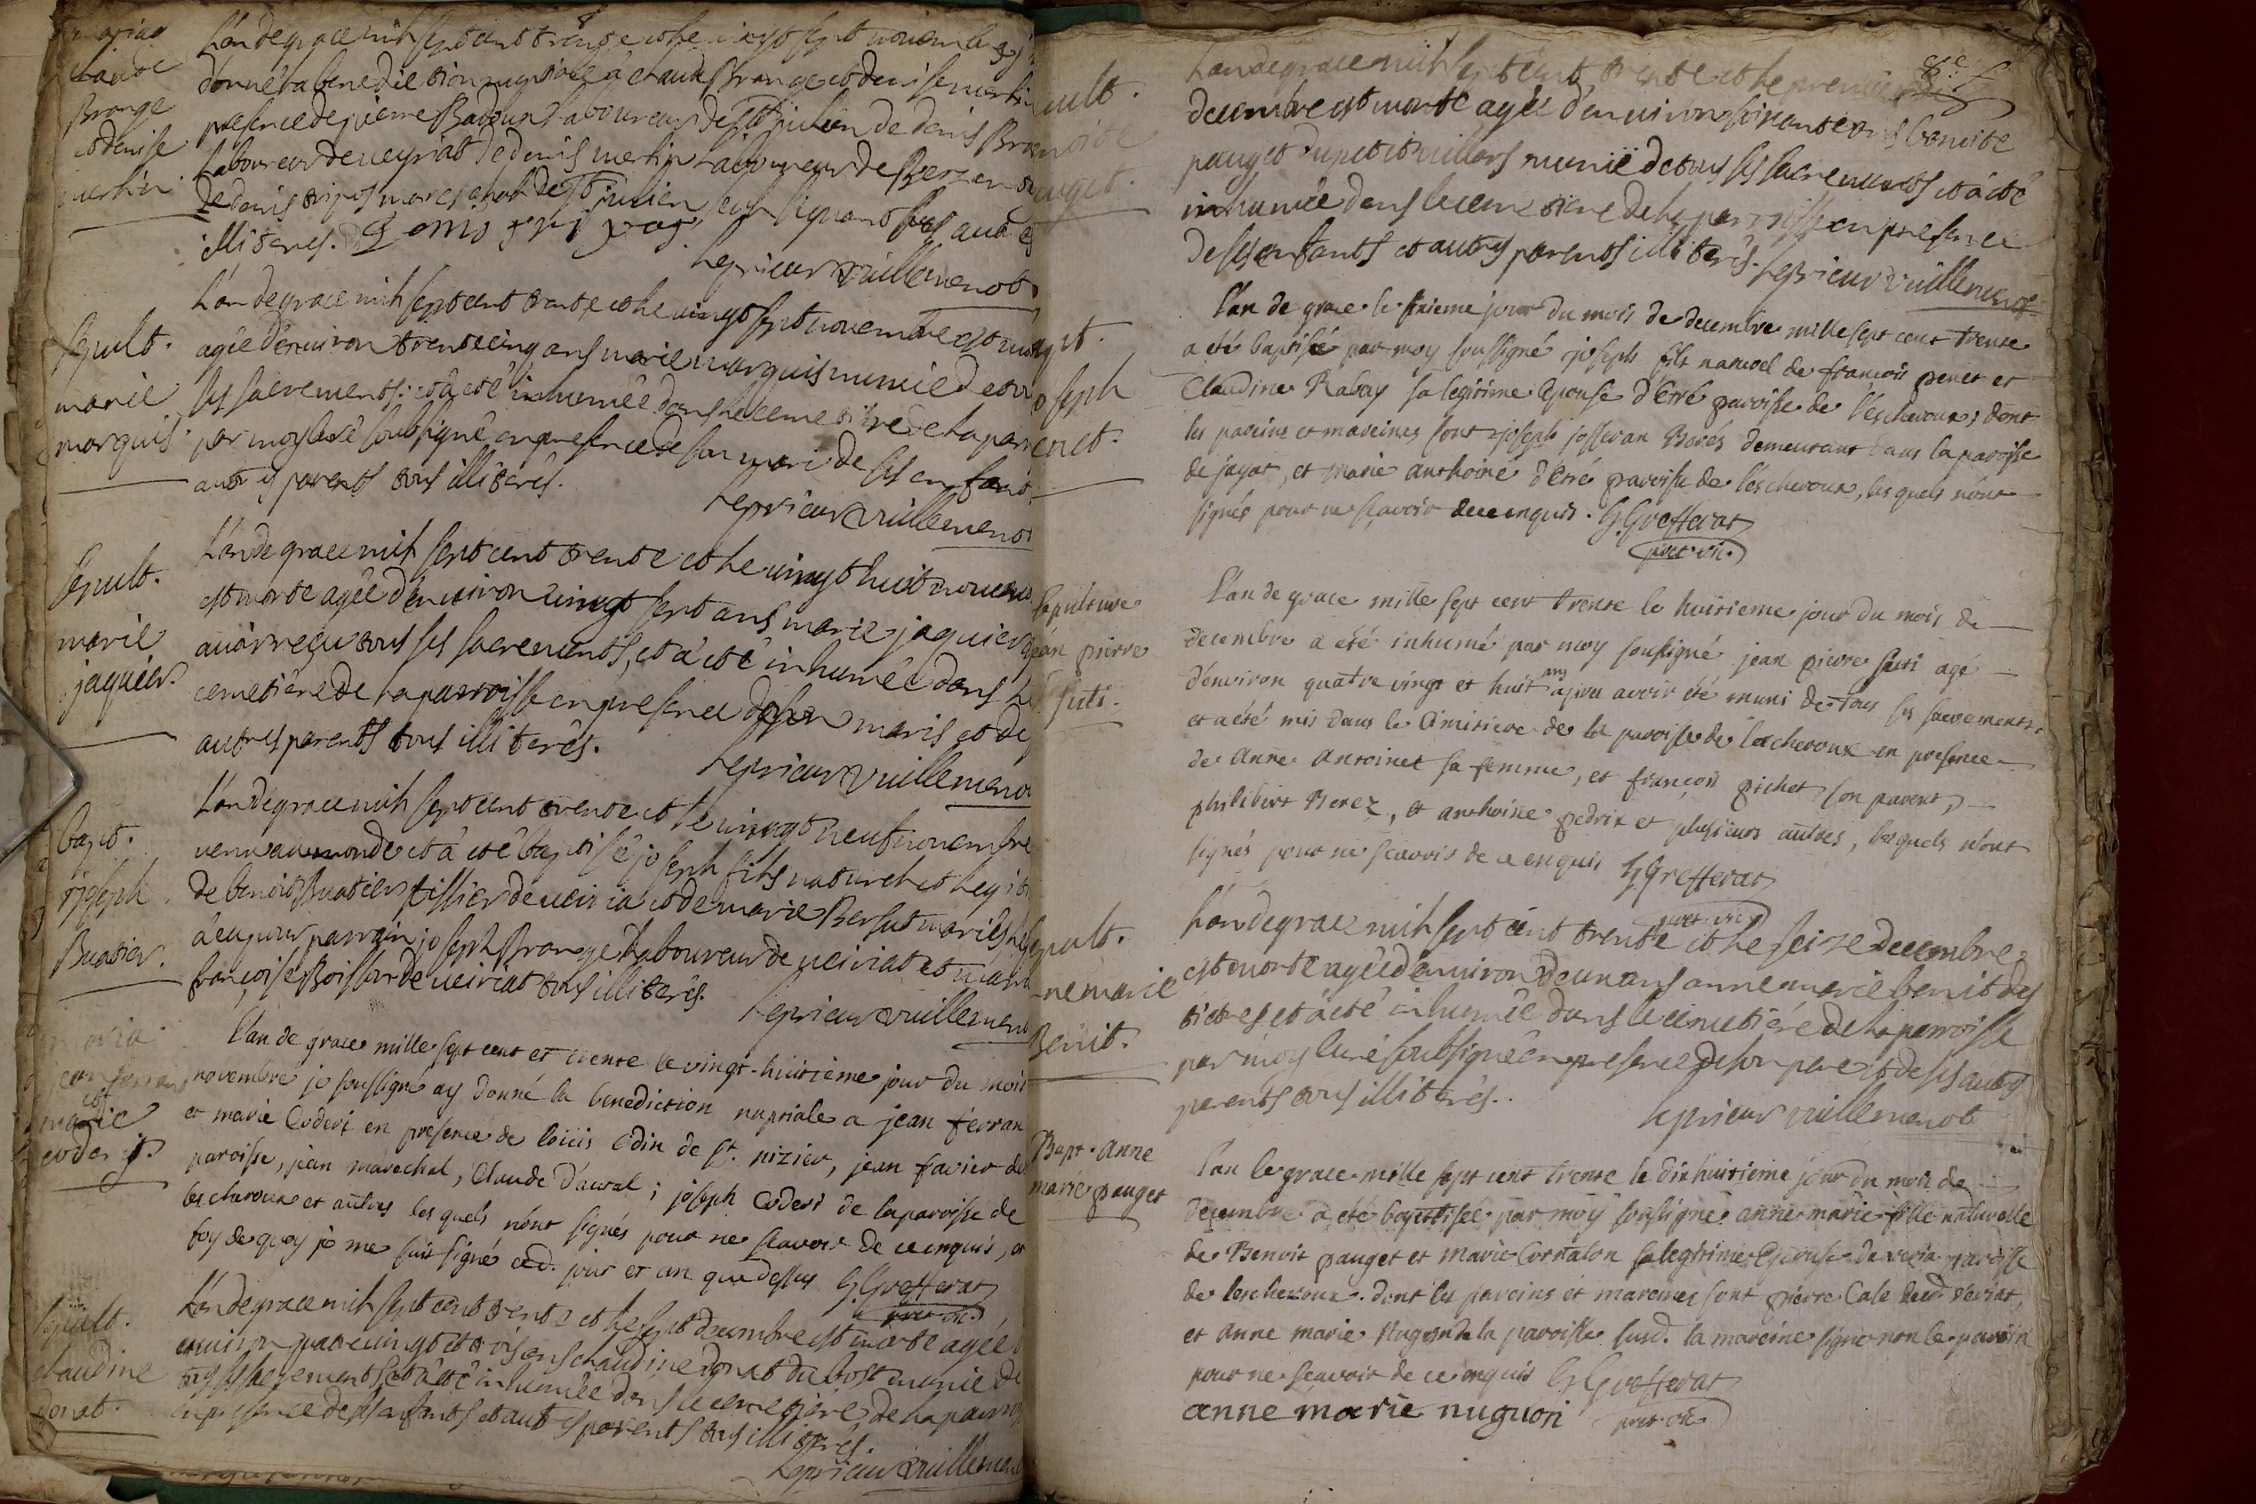 mariag
claude
Brange
et denise
merlin.
L'an de grace mil sept cent trente et le vingt sept novembre j'
donné la benediction nuptiale à claude Brange et denise merlin
presence de pierre Badoux laboureur de St julien de denis Bran
laboureur de veyriat de denis merlin laboureur de
de denis marechal de St julien
illiteres.
le prieur vuillemenot
Sepult.
marie
marquis.
L'an de grace mil sept cent trente et le vingt sept novembre est mor
agée d'environ trente cinq ans marie marquis munie de tou
ses sacrements. et a eté inhumée dans le cemetière de la par
par moy curé soubsigné en presence de son mari de ses enfant
autres parents tous illiterés.
le prieur vuillemenot
Sepult.
marie
jaquier.
L'an de grace mil sept cent trente et le vingt huit novem
est morte agée d'environ vingt sept ans marie jaquier
avoir reçu tous ses sacrements, et a eté inhumée dans le
cemetière de la parroisse en presence de son maris et de
autres parents tous illiterés.
le prieur vuillemeno
bapt.
joseph
Buatier.
L'an de grace mil sept cent trente et le vingt neuf novembre
venu au monde et a eté baptisé joseph fils naturel et legit
de benoit Buatier tissier de veiria et de marie Bersut mariés
a eu pour parrain joseph Brange laboureur de veiriat et mar
françoise de veiriat tous illiterés.
le prieur vuillemen
maria
jean ferran
et
marie
coderi
L'an de grace mille sept cent et trente le vingt-huitieme jour du mois
novembre je soussigné ay donné la benediction nuptiale a jean ferran
et marie Coderi en presence de loüis Odin de St. nizier, jean favier de
paroisse, jean marechal, Claude d'aval; joseph Coderi de la paroisse de
lescheroux et autres les quels n'ont signés pour ne scavoir de ce enquis, en
foy de quoy je me suis signé led. jour et an que dessus G. Grefferat
pret. vic.
Sepult.
claudine
donat.
L'an de grace mil sept cent trente et le sept decembre est morte agée
environ quatre vingt et trois ans claudine donat du bost munie de
tous ses sacrements et a eté inhumée dans le cemetière de la parroi
en presence de ses enfants et autres parents tous illiterés.
le prieur vuillemen
Sepult.
benoite
pauget.
L'an de grace mil sept cent trente et le premier
decembre est morte agée d'environ soixante ans benoite
pauget du petit villars munië de tous ses sacrements et a eté
inhumée dans le cemetière de la parroisse en presence
de ses enfants et autres parents illiterés. le prieur vuillemenot
bapt.
joseph
penet.
L'an de grace le sixieme jour du mois de decembre mille sept cent trente
a eté baptisé par moy soussigné joseph fils naturel de francois penet et
Claudine Rabay sa legitime epouse d'Etré paroisse de l'escheroux; dont
les pareins et mareines sont joseph josseran demeurant dans la paroisse
de jayat, et marie anthoine d'Etré paroisse de l'escheroux, les quels n'ont
signés pour ne sçavoir de ce enquis. G. Grefferat
pret. vic.
sepulture
jean pierre
suti.
L'an de grace mille sept cent trente le huitieme jour du mois de
decembre a eté inhumé par moy soussigné jean pierre suti agé
d'environ quatre vingt et huit ans apres avoir été muni de tous ses sacrements,
et a été mis dans le Cimitiere de la paroisse de lescheroux en presence
de Anne Antoinet sa femme, et françois pichet son parent,
philibert Perez, et anthoine pedrix et plusieurs autres, lesquels n'ont
signés pour ne scavoir de ce enquis G. Grefferat
pret. vic.
Sepult.
anne marie
Benit.
L'an de grace mil sept cent trente et le seize decembre
est morte agée d'environ deux ans anne marie benit des
et a eté inhumée dans le cemetière de la parroisse
par moy curé soubsigné en presence de son pere et de ses autres
parents tous illiterés.
le prieur vuillemenot
Bapt. Anne
marie pauget
L'an de grace mille sept cent trente le dix huitieme jour du mois de
decembre a eté baptisée par moy soussigné anne marie fille naturelle
de Benoit pauget et marie Cornalon sa legitime Epouse de veria paroisse
de lescheroux. dont les pareins et mareines sont pierre Cale dud. veriat,
et anne marie Nugon de la paroisse susd. la mareine signe non le parein
pour ne scavoir de ce enquis G. Grefferat
anne marie nuguon pret. vic.